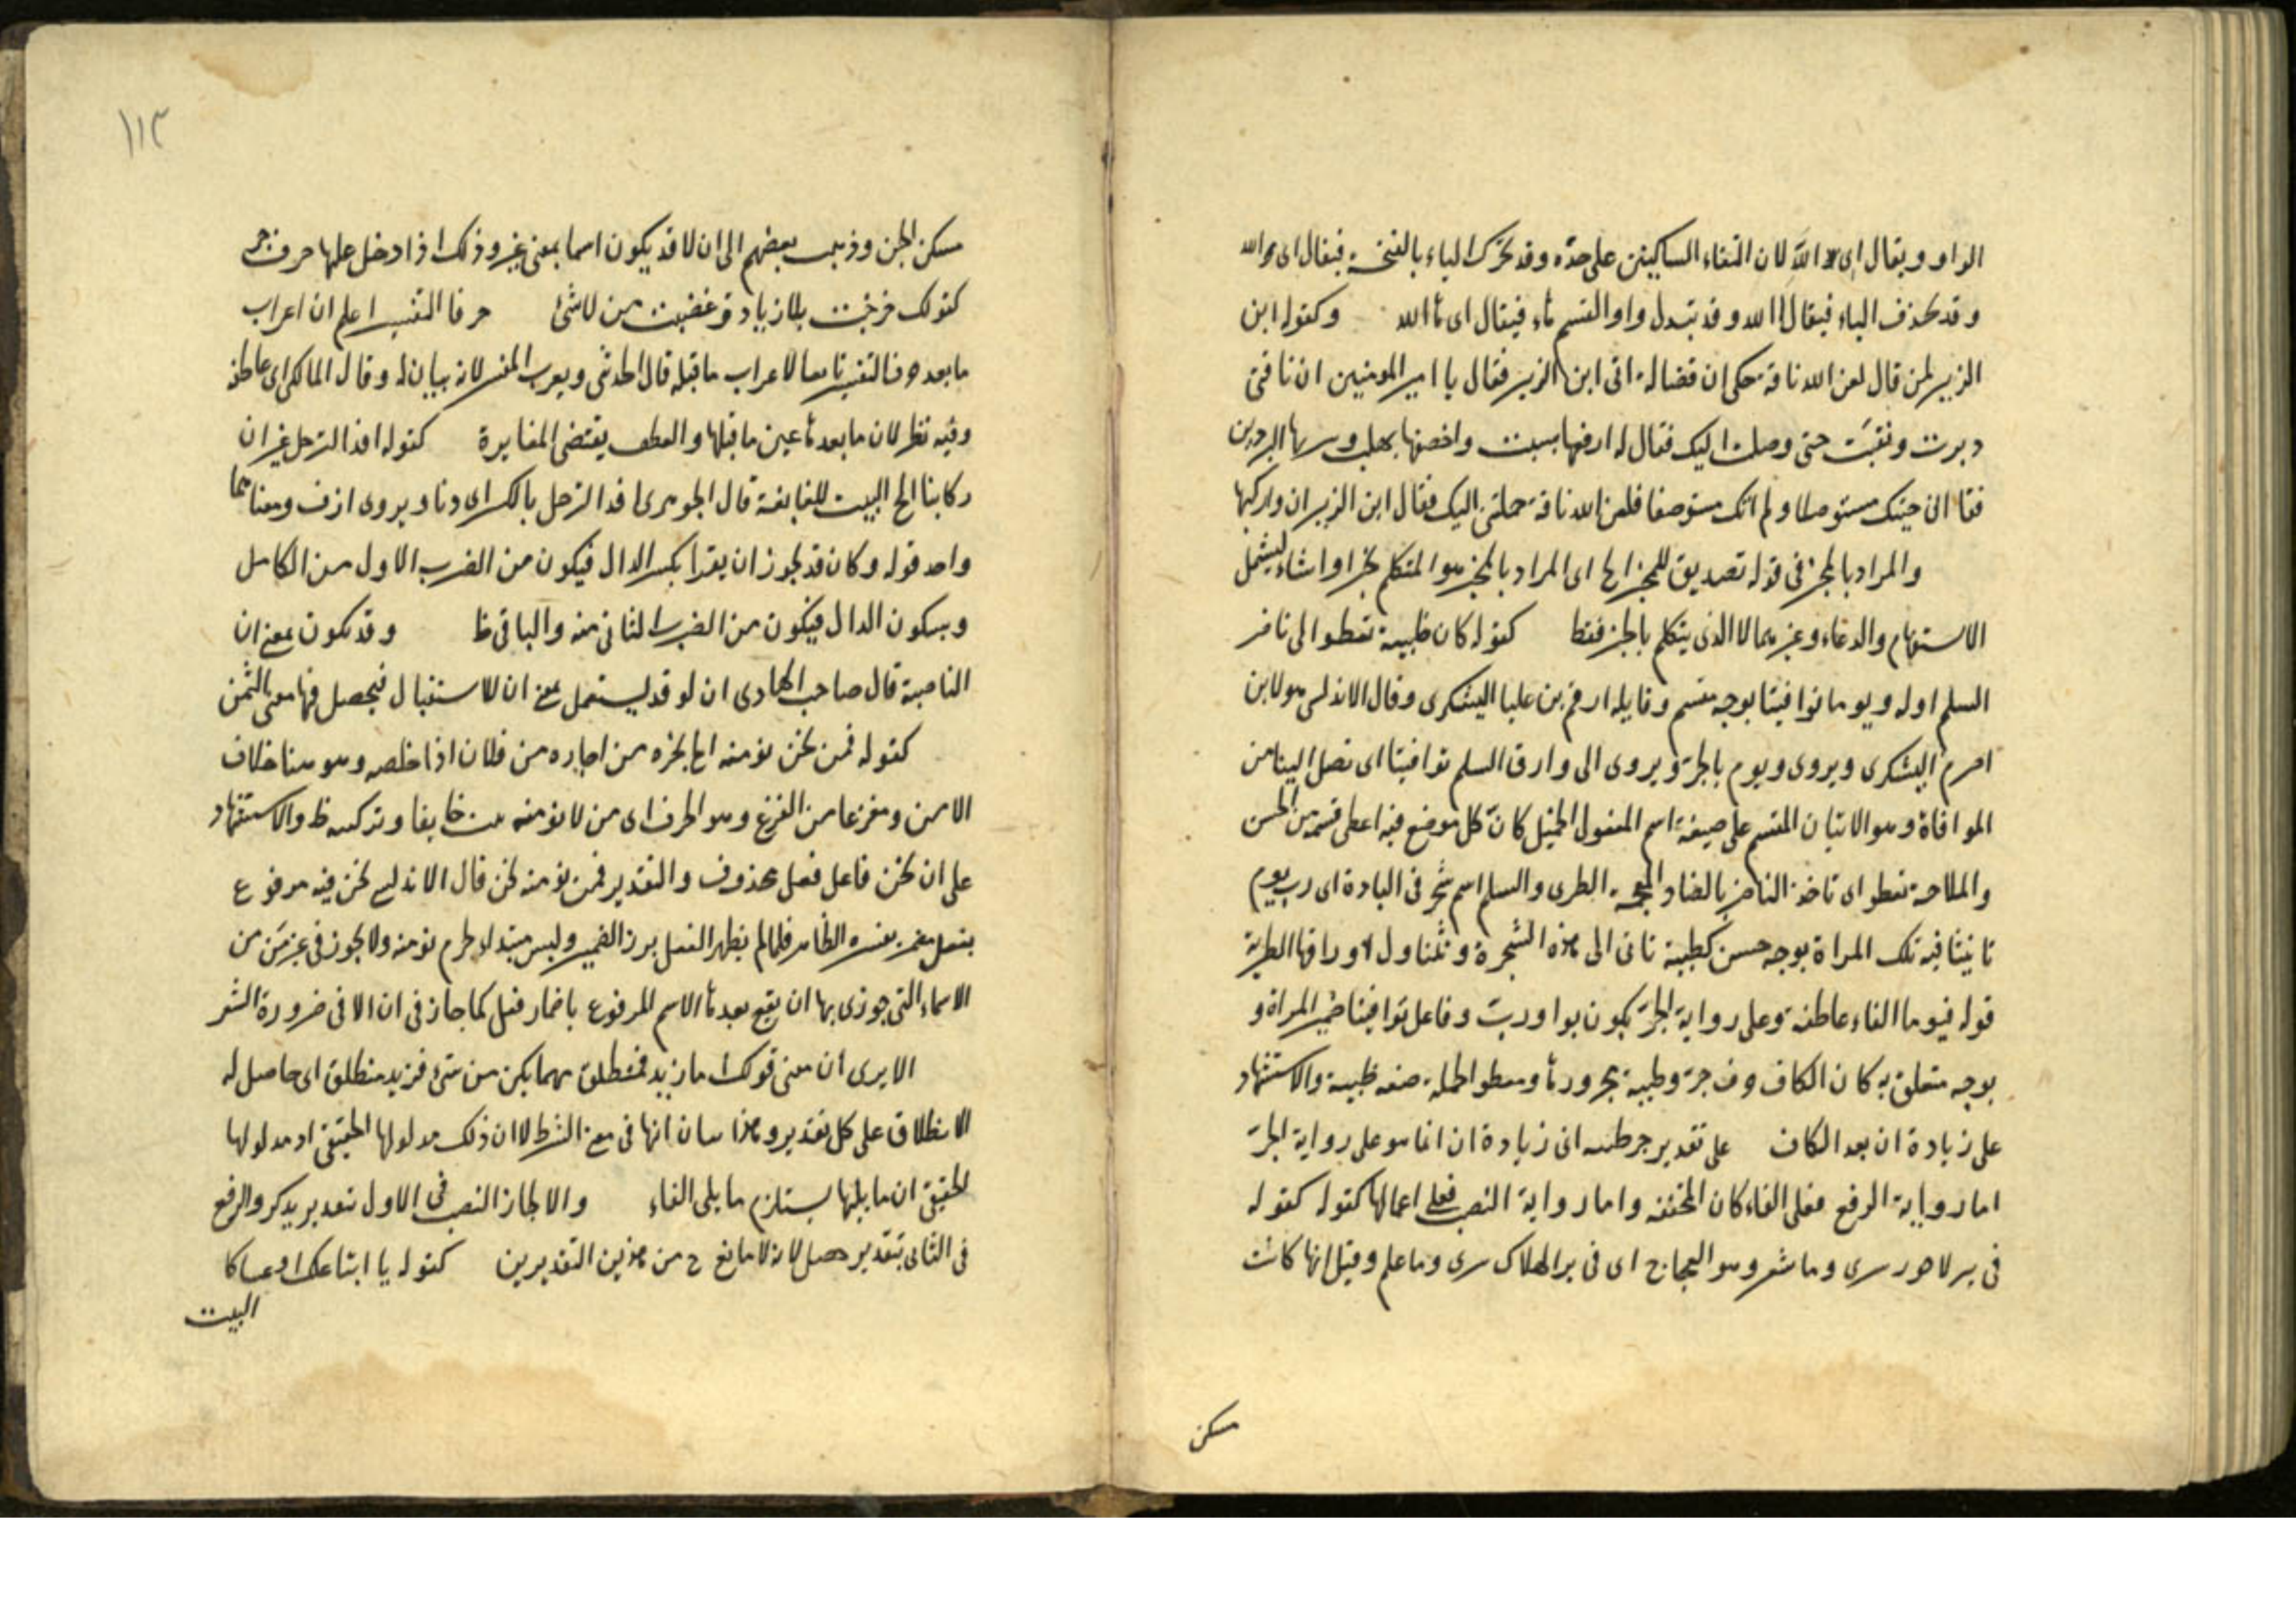 الواو ويقال اى الله لان التقاء الساكنين على حده وقد تحرك الياء بالفتحة فيقال اى الله
وقد تحذف الياء فيقال الله وقد تبدل واو القسم هاء فيقال اى ها الله وكقوله ابن
الزبير لمن قال لعن الله ناقة حكى ان فضالة اتى ابن الزبير فقال يا امير المومنين ان ناقتى
دبرت ونقبت حتى وصلت اليك فقال له ارقعها بسبت واخصفها بهلب وسر بها البردين
فقال انى جيتك مستوصلا ولم اتك مستوصفا فلعن الله ناقة حملتنى اليك فقال ابن الزبير ان وراكبها
والمراد بالمخبر فى قوله تصديق للمخبر الخ اى المراد بالمخبر هو المتكلم بخبر او انشاء ليشمل
الاستفهام والدعاء وغيرهما لا الذى يتكلم بالخبر فقط كقوله كان ظبية تعطو الى ناضر
السلم اوله ويوما توافينا بوجه مقسم وقايله ارقم بن علبا اليشكرى وقال الاندلسى هو لابن
اصرم اليشكرى ويروى ويوم بالجر ويروى الى وارق السلم توافينا اى تصل الينا من
الموافاة وهو الاتيان المقسم على صيغة اسم المفعول الجميل كان كل موضع فيه اعطى قسمه من الحسن
والملاحة تعطو اى تاخذ الناضر بالضاد المعجمة الطرى والسلم اسم شجر فى البادية اى رب يوم
تاتينا فيه تلك المراة بوجه حسن كظبية تاتى الى هذه الشجرة وتتناول لاوراقها الطرية
قوله فيوما الفاء عاطفة وعلى رواية الجر يكون بواو رب وفاعل توافينا ضمير المراة و
بوجه متعلق به كان الكاف حرف جر وظبية مجرور بها وتعطو الجملة صفة ظبية والاستشهاد
على زيادة ان بعد الكاف على تقدير جر ظبية اى زيادة ان انما هو على رواية الجر
اما رواية الرفع فعلى الغاء كان المخففة واما رواية النصب فعلى اعمالها كقوله كقوله
فى بير لا حور سرى وما شعر وهو العجاج اى فى بير الهلاك سرى وما علم وقيل انها كانت
مسكن
١١٣
مسكن الجن وذهب بعضهم الى ان لا قد يكون اسما بمعنى غير وذلك اذا دخل عليها حرف جر
كقولك خرجت بلا زياد وغضبت من لا شئ حرفا التفسير اعلم ان اعراب
ما بعد حرف التفسير تابعا لاعراب ما قبله قال الحديثى ويعرب المفسر لانه بيان له وقال المالكى اى عاطفة
وفيه نظر لان ما بعدها عين ما قبلها والعطف يقتضى المغايرة كقوله افد الترحل غير ان
ركابنا الخ البيت للنابغة قال الجوهرى افد الترحل بالكسر اى دنا ويروى ازف ومعناهما
واحد قوله وكان قد يجوز ان يقرا بكسر الدال فيكون من الضرب الاول من الكامل
وبسكون الدال فيكون من الضرب الثانى منه والباقى ظ وقد تكون بمعنى ان
الناصبة قال صاحب الهادى ان لو قد يستعمل بمعنى ان للاستقبال فيحصل فيها معنى التمن
كقوله فمن نحن نومنه الخ من اجاره من فلان اذا خلصه وهو هنا خلاف
الامن ومفزعا من الفزع وهو الخوف اى من لا نومنه يبت خايفا وتركيبه ظ والاستشهاد
على ان نحن فاعل فعل محذوف والتقدير فمن نومنه نحن قال الاندلسى نحن فيه مرفوع
بفعل مضمر يفسره الظاهر فلما لم يظهر الفعل برز الضمير وليس مبتدا لجزم نومنه ولا يجوز فى غير من
الاسماء التى جوزى بها ان يقع بعدها الاسم المرفوع باضمار فعل كما جاز فى ان الا فى ضرورة الشعر
الا يرى ان معنى قولك اما زيد فمنطلق مهما يكن من شئ فزيد منطلق اى حاصل له
الانطلاق على كل تقدير وهذا بيان انها فى معنى الشرط لا ان ذلك مدلولها الحقيقى اذ مدلولها
الحقيقى ان ما يليها يستلزم ما يلى الفاء والا لجاز النصب فى الاول بتقدير يذكر والرفع
فى الثانى بتقدير حصل لانه لا مانع ح من هذين التقديرين كقوله يا ابتا علك او عساكا
البيت